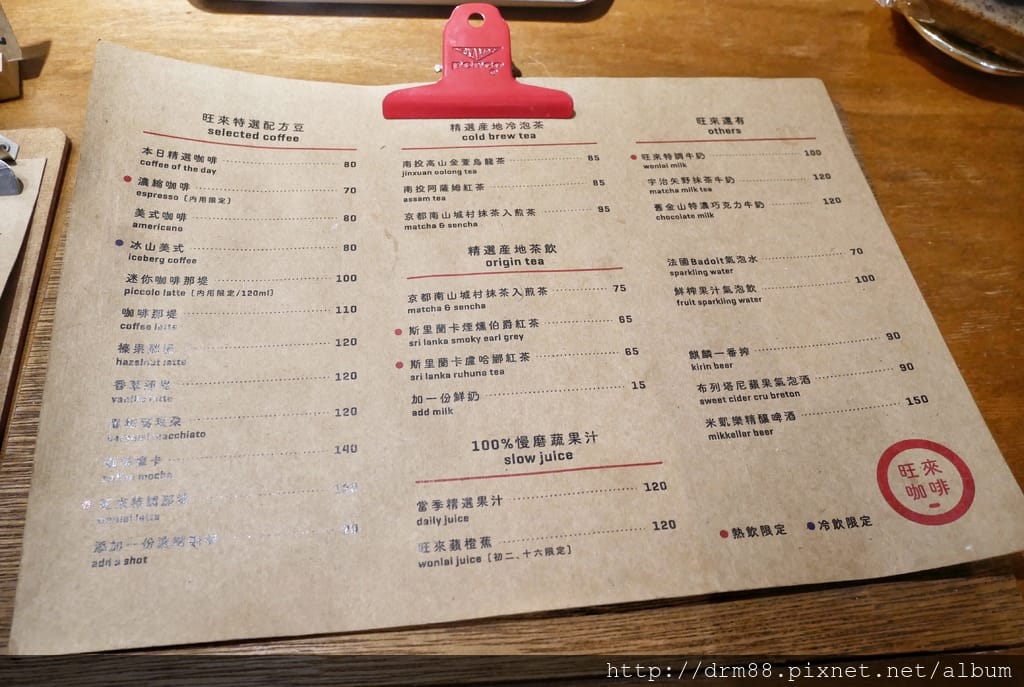 旺來特選配方豆
selected coffee
本日精選咖啡 80
coffee of the day
濃縮咖啡 70
espresso (內用限定)
美式咖啡 80
americano
冰山美式 80
iceberg coffee
迷你咖啡那堤 100
piccolo latte (內用限定/120ml)
咖啡那堤 110
coffee latte
榛果那堤 120
hazelnut latte
香草那堤 120
vanilla latte
120
macchiato
摩卡 140
mocha
旺來特調那堤
wonlai latte
添加一份
add a shot
精選產地冷泡茶
cold brew tea
南投高山金萱烏龍茶 85
jinxuan oolong tea
南投阿薩姆紅茶 85
assam tea
京都南山城村抹茶入煎茶 95
matcha & sencha
精選產地茶飲
origin tea
京都南山城村抹茶入煎茶 75
matcha & sencha
斯里蘭卡煙燻伯爵紅茶 65
sri lanka smoky earl grey
斯里蘭卡盧哈娜紅茶 65
sri lanka ruhuna tea
加一份鮮奶 15
add milk
100%慢磨蔬果汁
slow juice
當季精選果汁 120
daily juice
旺來蘋橙蕉 120
wonlai juice (初二、十六限定)
旺來還有
others
旺來特調牛奶 100
wonlai milk
宇治矢野抹茶牛奶 120
matcha milk tea
舊金山特濃巧克力牛奶 120
chocolate milk
法國Badoit氣泡水 70
sparkling water
鮮榨果汁氣泡飲 100
fruit sparkling water
麒麟一番搾 90
kirin beer
布列塔尼蘋果氣泡酒 90
sweet cider cru breton
米凱樂精釀啤酒 150
mikkeller beer
旺來
咖啡
熱飲限定 冷飲限定
http://drm88.pixnet.net/album